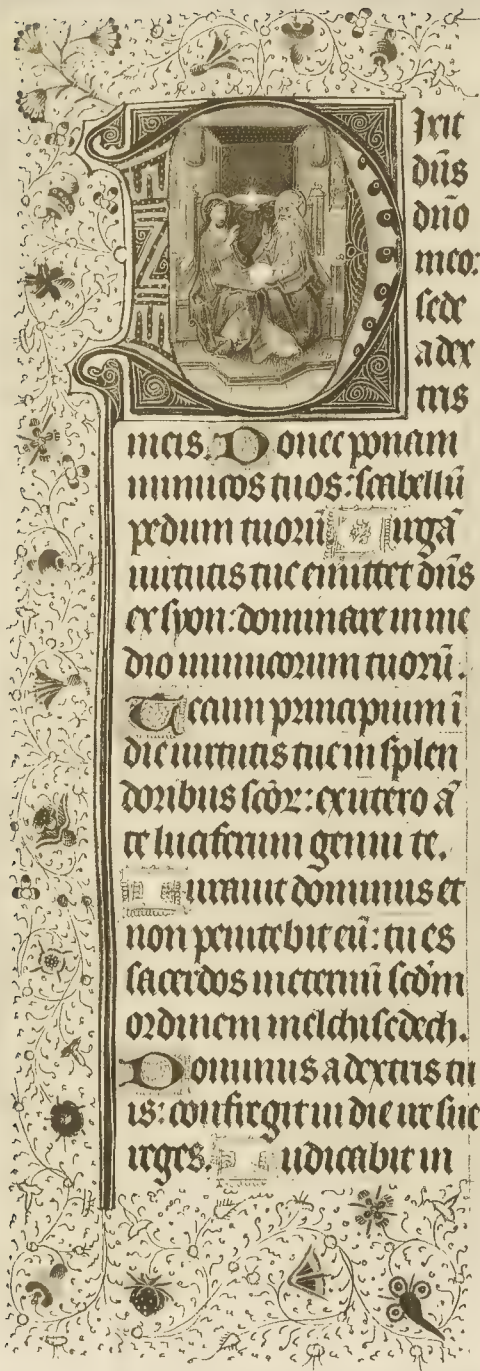 Dixit
dn̄s
dn̄o
meo:
sede
a dex
tris
meis. Donec ponam
inimicos tuos: scabellū
pedum tuorū Uirgā
uirtutis tue emittet dn̄s
ex syon: dominare in me
dio inimicorum tuorū.
Tecum principium ī
die uirtutis tue in splen
doribus scōꝝ: ex utero ā
te luciferum genui te.
Iurauit dominus et
non penitebit eū: tu es
sacerdos in eternū scd̄m
ordinem melchisedech.
Dominus a dextris tu
is: confregit in die ire sue
reges. Iudicabit in